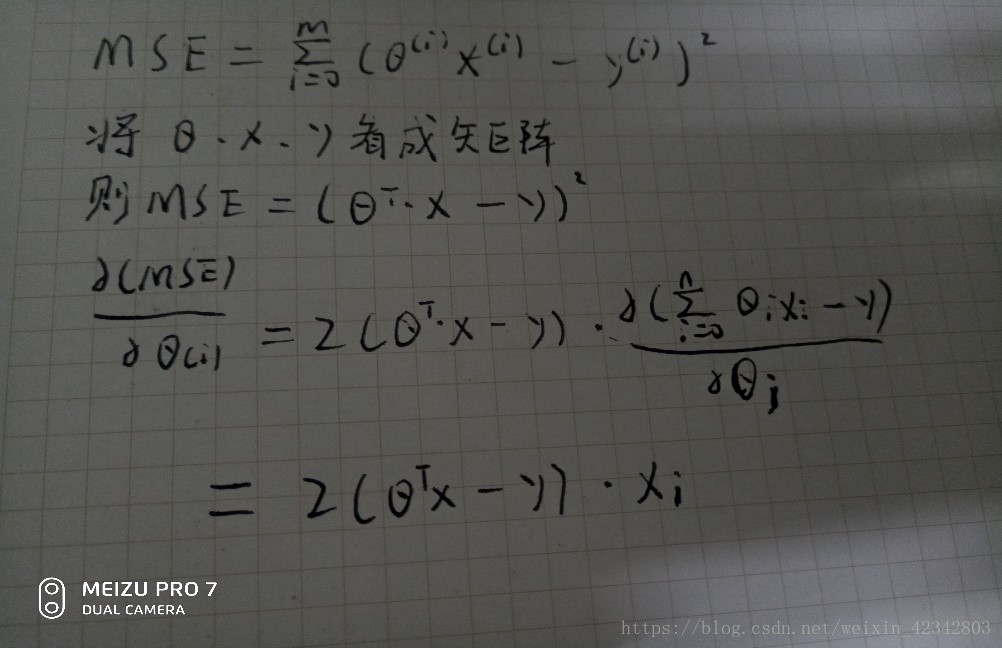 MSE = \sum_{i=0}^{m} (θ^{(i)} x^{(i)} - y^{(i)})^2
将 θ、x、y 看成矩阵
则 MSE = (θ^T · x - y)^2
\frac{∂(MSE)}{∂θ(i)} = 2(θ^T · x - y) · \frac{∂(\sum_{i=0}^{n} θ_i x_i - y)}{∂θ_i}
= 2(θ^T x - y) · x_i
MEIZU PRO 7
DUAL CAMERA
https://blog.csdn.net/weixin_42342803